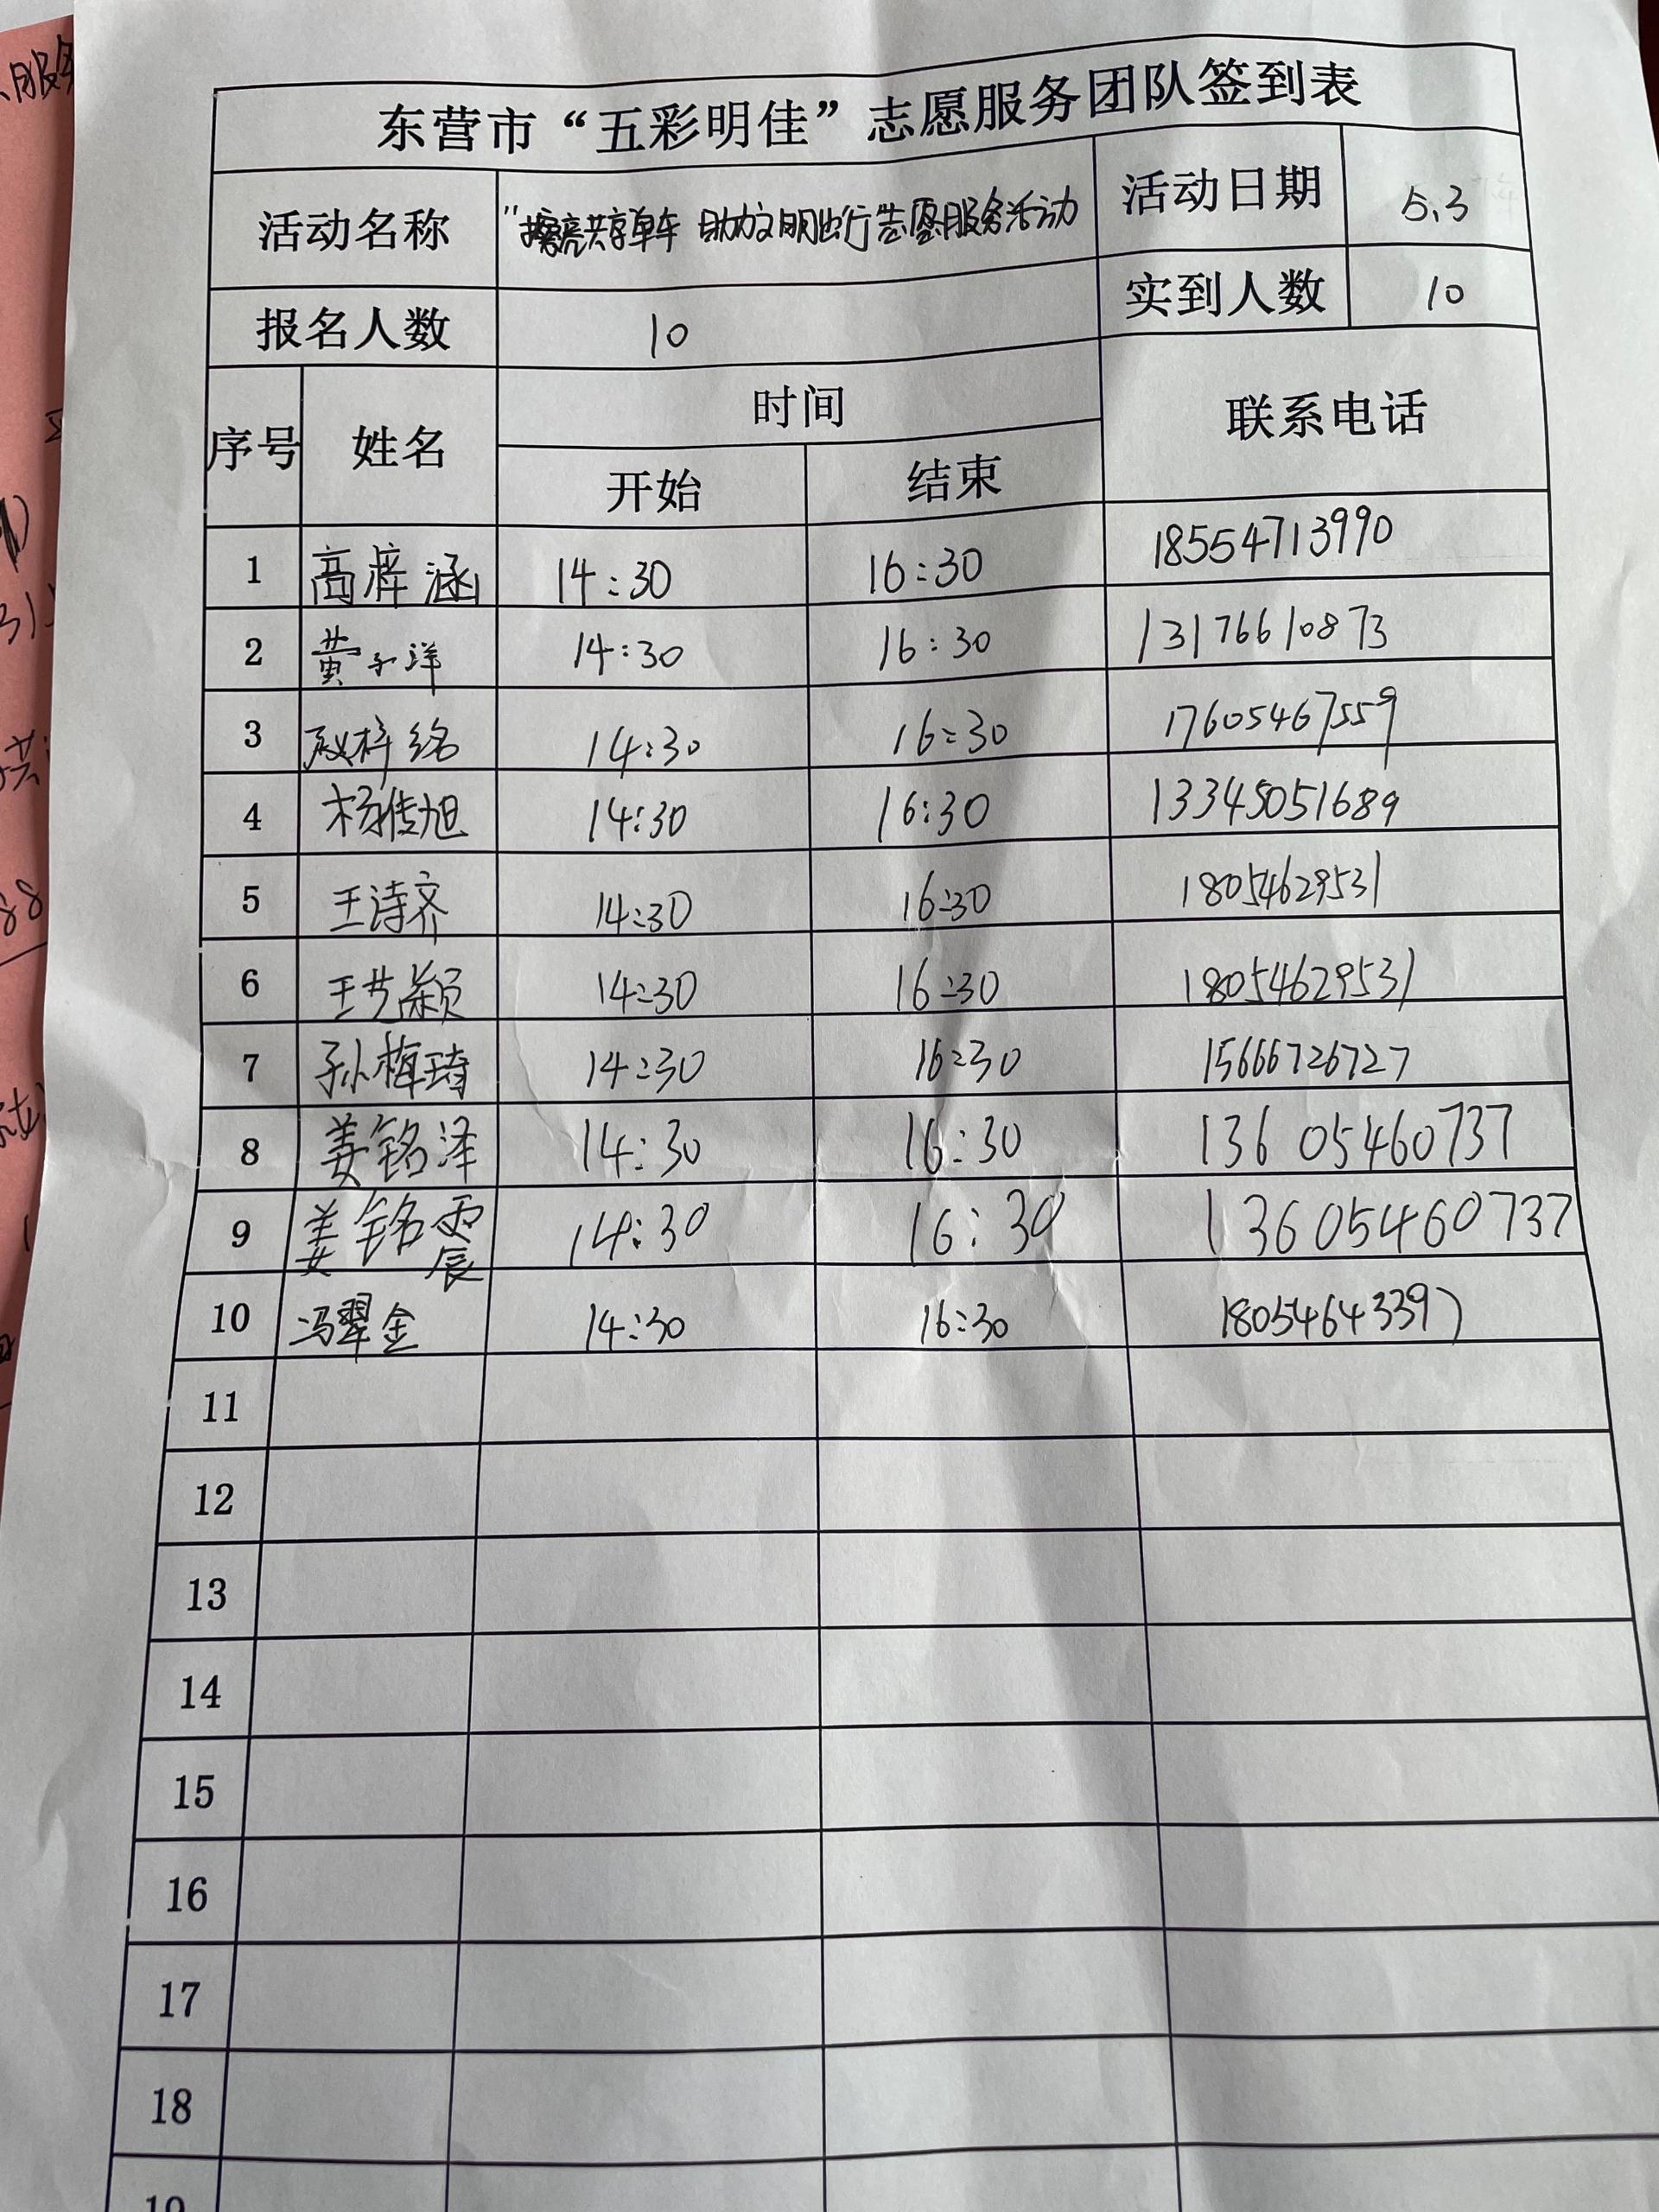 东营市“五彩明佳”志愿服务团队签到表
活动名称 "擦亮共享单车 助力文明出行志愿服务活动 活动日期 5.3
报名人数 10 实到人数 10
序号 姓名 时间 联系电话
开始 结束
1 高梓涵 14:30 16:30 18554713990
2 黄子洋 14:30 16:30 13176610873
3 赵梓络 14:30 16:30 17605467559
4 杨传旭 14:30 16:30 13345051689
5 王诗齐 14:30 16:30 18054629531
6 王艺颖 14:30 16:30 18054629531
7 孙梅琦 14:30 16:30 15666726727
8 姜铭泽 14:30 16:30 13605460737
9 姜铭震 14:30 16:30 13605460737
10 冯翠金 14:30 16:30 18054643397
11
12
13
14
15
16
17
18
19